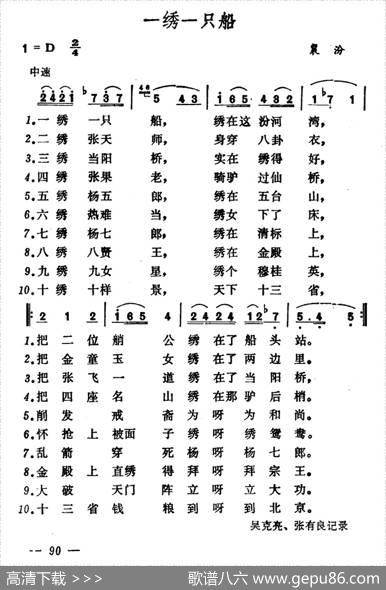 一绣一只船
1=D 2/4 襄汾
中速
2421 ♭7 37 5 43 1 65 4 243 1♭7 1
1.一绣 一只 船， 绣在这 汾河 湾，
2.二绣 张天 师， 身穿 八卦 衣，
3.三绣 当阳 桥， 实在 绣得 好，
4.四绣 张果 老， 骑驴 过仙 桥，
5.五绣 杨五 郎， 绣在 五台 山，
6.六绣 热难 当， 绣女 下了 床，
7.七绣 杨七 郎， 绣在 清标 上，
8.八绣 八贤 王， 绣在 金殿 上，
9.九绣 九女 星， 绣个 穆桂 英，
10.十绣 十样 景， 天下 十三 省，
2 1 2 1 65 4 2 4 5 24 12 ♭7 5. 4 5
1.把二位艄公绣在了船头站。
2.把金童玉女绣在了两边里。
3.把张飞一道绣在了当阳桥，
4.把四座名山绣在那驴后梢。
5.削发戒斋为呀为和尚。
6.怀抢上被面子绣呀绣鸳鸯。
7.乱箭穿死杨呀杨七郎。
8.金殿上直绣得拜呀拜宗王。
9.大破天门阵立呀立大功。
10.十三省钱粮到呀到北京。
吴克亮、张有良记录
— 90 —
高清下载 >>> 歌谱八六 www.gepu86.com